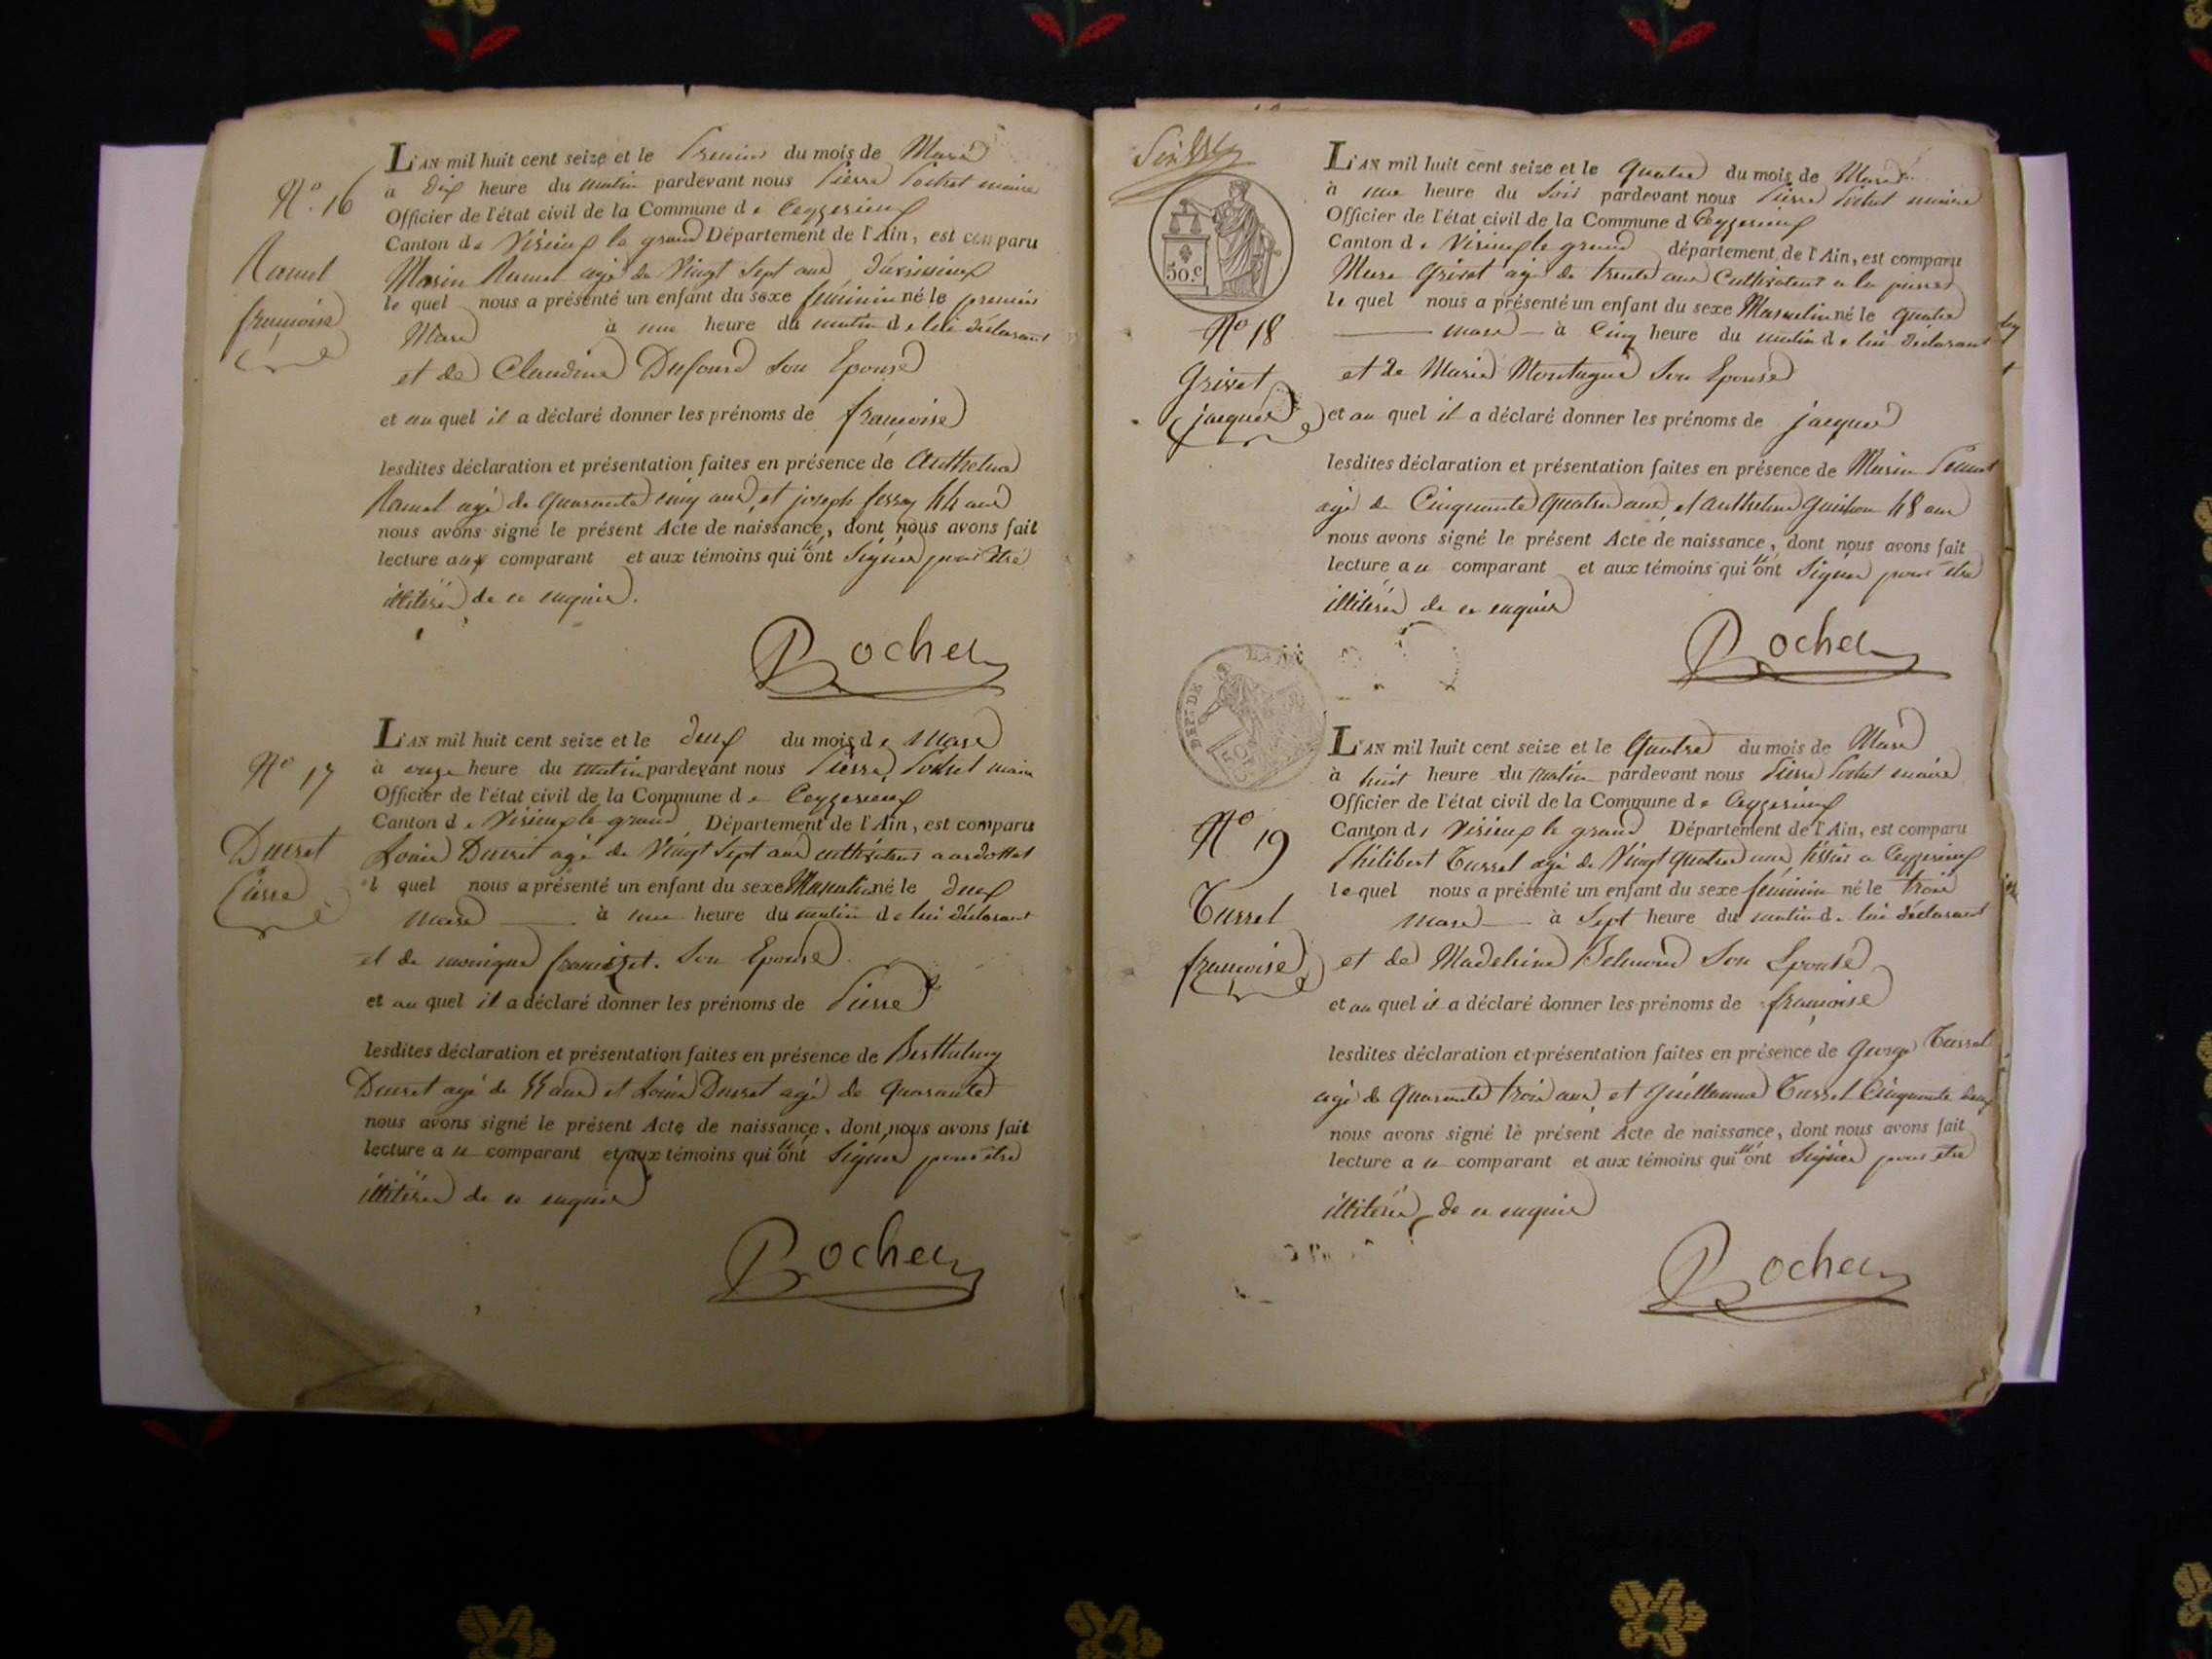 N.o 16
Ramel
françoise
L'AN mil huit cent seize et le Premier du mois de Mars
à dix heure du matin pardevant nous Pierre Pochet maire
Officier de l'état civil de la Commune de Ceyzerieux
Canton de Virieux le grand Département de l'Ain, est comparu
Marin Ramel agé de Vingt Sept ans
le quel nous a présenté un enfant du sexe féminin né le premier
Mars à une heure du matin de lui déclarant
et de Claudine Dufour Son Epouse
et au quel il a déclaré donner les prénoms de françoise
lesdites déclaration et présentation faites en présence de Anthelme
Ramel agé de quarante cinq ans, et joseph 44 ans
nous avons signé le présent Acte de naissance, dont nous avons fait
lecture aux comparant et aux témoins qui n'ont Signer pour être
illiteré de ce enquis.
Rochet
N.o 17
Ducret
Pierre
L'AN mil huit cent seize et le deux du mois de Mars
à onze heure du matin pardevant nous Pierre Pochet maire
Officier de l'état civil de la Commune de Ceyzerieux
Canton de Virieux le grand Département de l'Ain, est comparu
Louis Ducret agé de Vingt Sept ans cultivateur a ardosset
l quel nous a présenté un enfant du sexe Masculin né le deux
mars à une heure du matin de lui déclarant
et de monique Son Epouse
et au quel il a déclaré donner les prénoms de Pierre
lesdites déclaration et présentation faites en présence de Berthelemy
Ducret agé de ans et Louis Ducret agé de quarante
nous avons signé le présent Acte de naissance, dont nous avons fait
lecture au comparant et aux témoins qui n'ont Signer pour être
illiteré de ce enquis
Rochet
50.c
N.o 18
Grisset
jacques
L'AN mil huit cent seize et le quatre du mois de Mars
à une heure du Soir pardevant nous Pierre Pochet maire
Officier de l'état civil de la Commune d Ceyzerieux
Canton de Virieux le grand département de l'Ain, est comparu
Marc Griset agé de trente ans Cultivateur a la
le quel nous a présenté un enfant du sexe Masculin né le quatre
mars à Cinq heure du matin de lui déclarant
et de Marie Montagne Son Epouse
et au quel il a déclaré donner les prénoms de jacques
lesdites déclaration et présentation faites en présence de Marin
agé de Cinquante quatre ans, et anthelme 48 ans
nous avons signé le présent Acte de naissance, dont nous avons fait
lecture au comparant et aux témoins qui n'ont Signer pour être
illiteré de ce enquis
Rochet
DEP. DE L'AIN
50
N.o 19
Tussel
françoise
L'AN mil huit cent seize et le Quatre du mois de Mars
à huit heure du matin pardevant nous Pierre Pochet maire
Officier de l'état civil de la Commune de Ceyzerieux
Canton de Virieux le grand Département de l'Ain, est comparu
Philibert Tussel agé de Vingt quatre ans a Ceyzerieux
le quel nous a présenté un enfant du sexe féminin né le trois
mars à Sept heure du matin de lui déclarant
et de Madeleine Belmond Son Epouse
et au quel il a déclaré donner les prénoms de françoise
lesdites déclaration et présentation faites en présence de George Tussel
agé de quarante trois ans, et Guillaume Tussel Cinquante deux
nous avons signé le présent Acte de naissance, dont nous avons fait
lecture au comparant et aux témoins qui n'ont Signer pour être
illiteré de ce enquis
Rochet